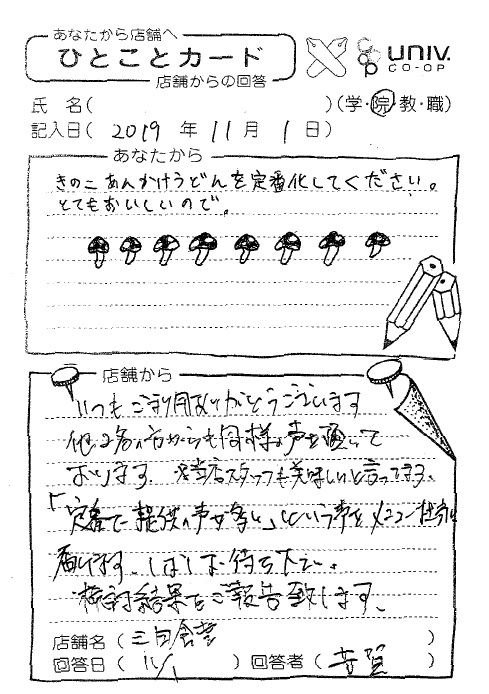 あなたから店舗へ
ひとことカード
店舗からの回答
UNIV.
CO-OP
氏 名( )(学・院・教・職)
記入日( 2019 年 11 月 1 日)
あなたから
きのこあんかけうどんを定番化してください。
とてもおいしいので。
店舗から
いつもご利用ありがとうございます
他2名の方からも同様の声を頂いて
おります。当店スタッフも美味しいと言ってます、
「定番で提供の声が多い」という声を メニュー
届けます、しばしお待ち下さい。
検討結果をご報告致します、
店舗名( 食堂 )
回答日( 11/1 ) 回答者( )